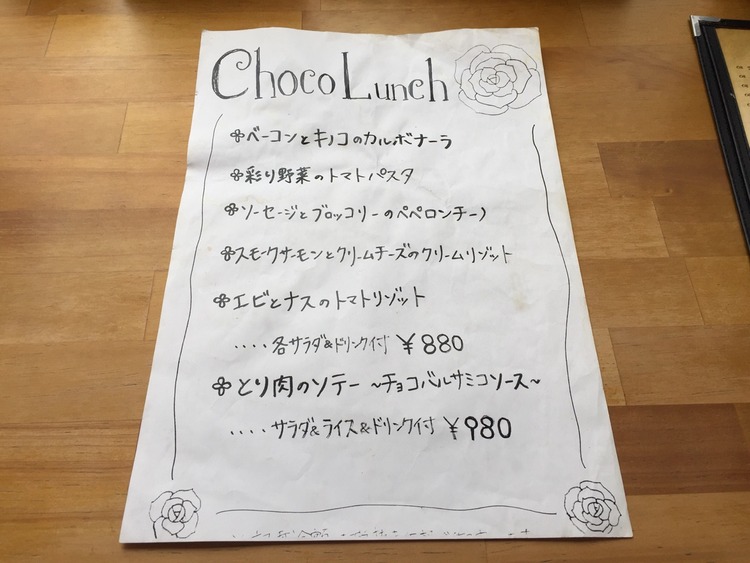 Choco Lunch
ベーコンとキノコのカルボナーラ
彩り野菜のトマトパスタ
ソーセージとブロッコリーのペペロンチーノ
スモークサーモンとクリームチーズのクリームリゾット
エビとナスのトマトリゾット
....各サラダ&ドリンク付 ¥880
とり肉のソテー ~チョコバルサミコソース~
....サラダ&ライス&ドリンク付 ¥980